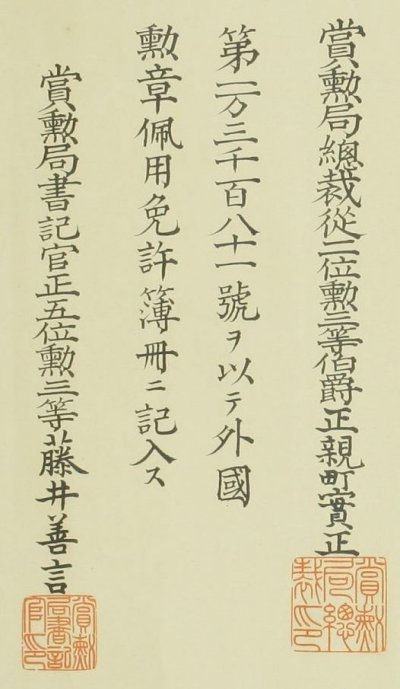 賞勲局總裁從二位勲三等伯爵正親町實正
賞勲局總裁印
第一万三千百八十一號ヲ以テ外國
勲章佩用免許簿冊ニ記入ス
賞勲局書記官正五位勲三等藤井善言
賞勲局書記官印